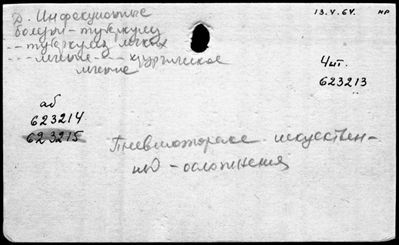 Д. Инфекционные
болезни - туберкулез
-- туберкулез легких
--- легкие --- хирургическое
легкие
13.V.64. НР
Чит.
623213
аб
623214
623215
Пневмоторакс искусствен-
ный - осложнения